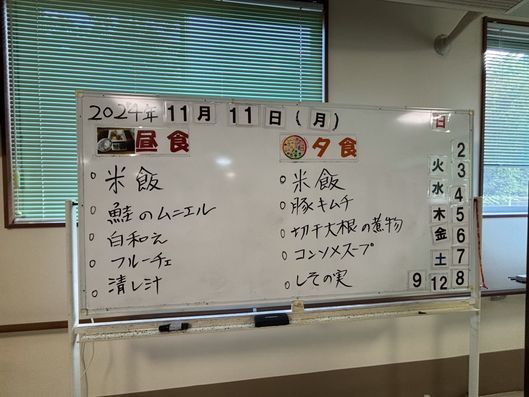 2024年 11月 11日(月)
昼食
米飯
鮭のムニエル
白和え
フルーチェ
清し汁
夕食
米飯
豚キムチ
切干大根の煮物
コンソメスープ
しその実
日
2
火 3
水 4
木 5
金 6
土 7
9 12 8